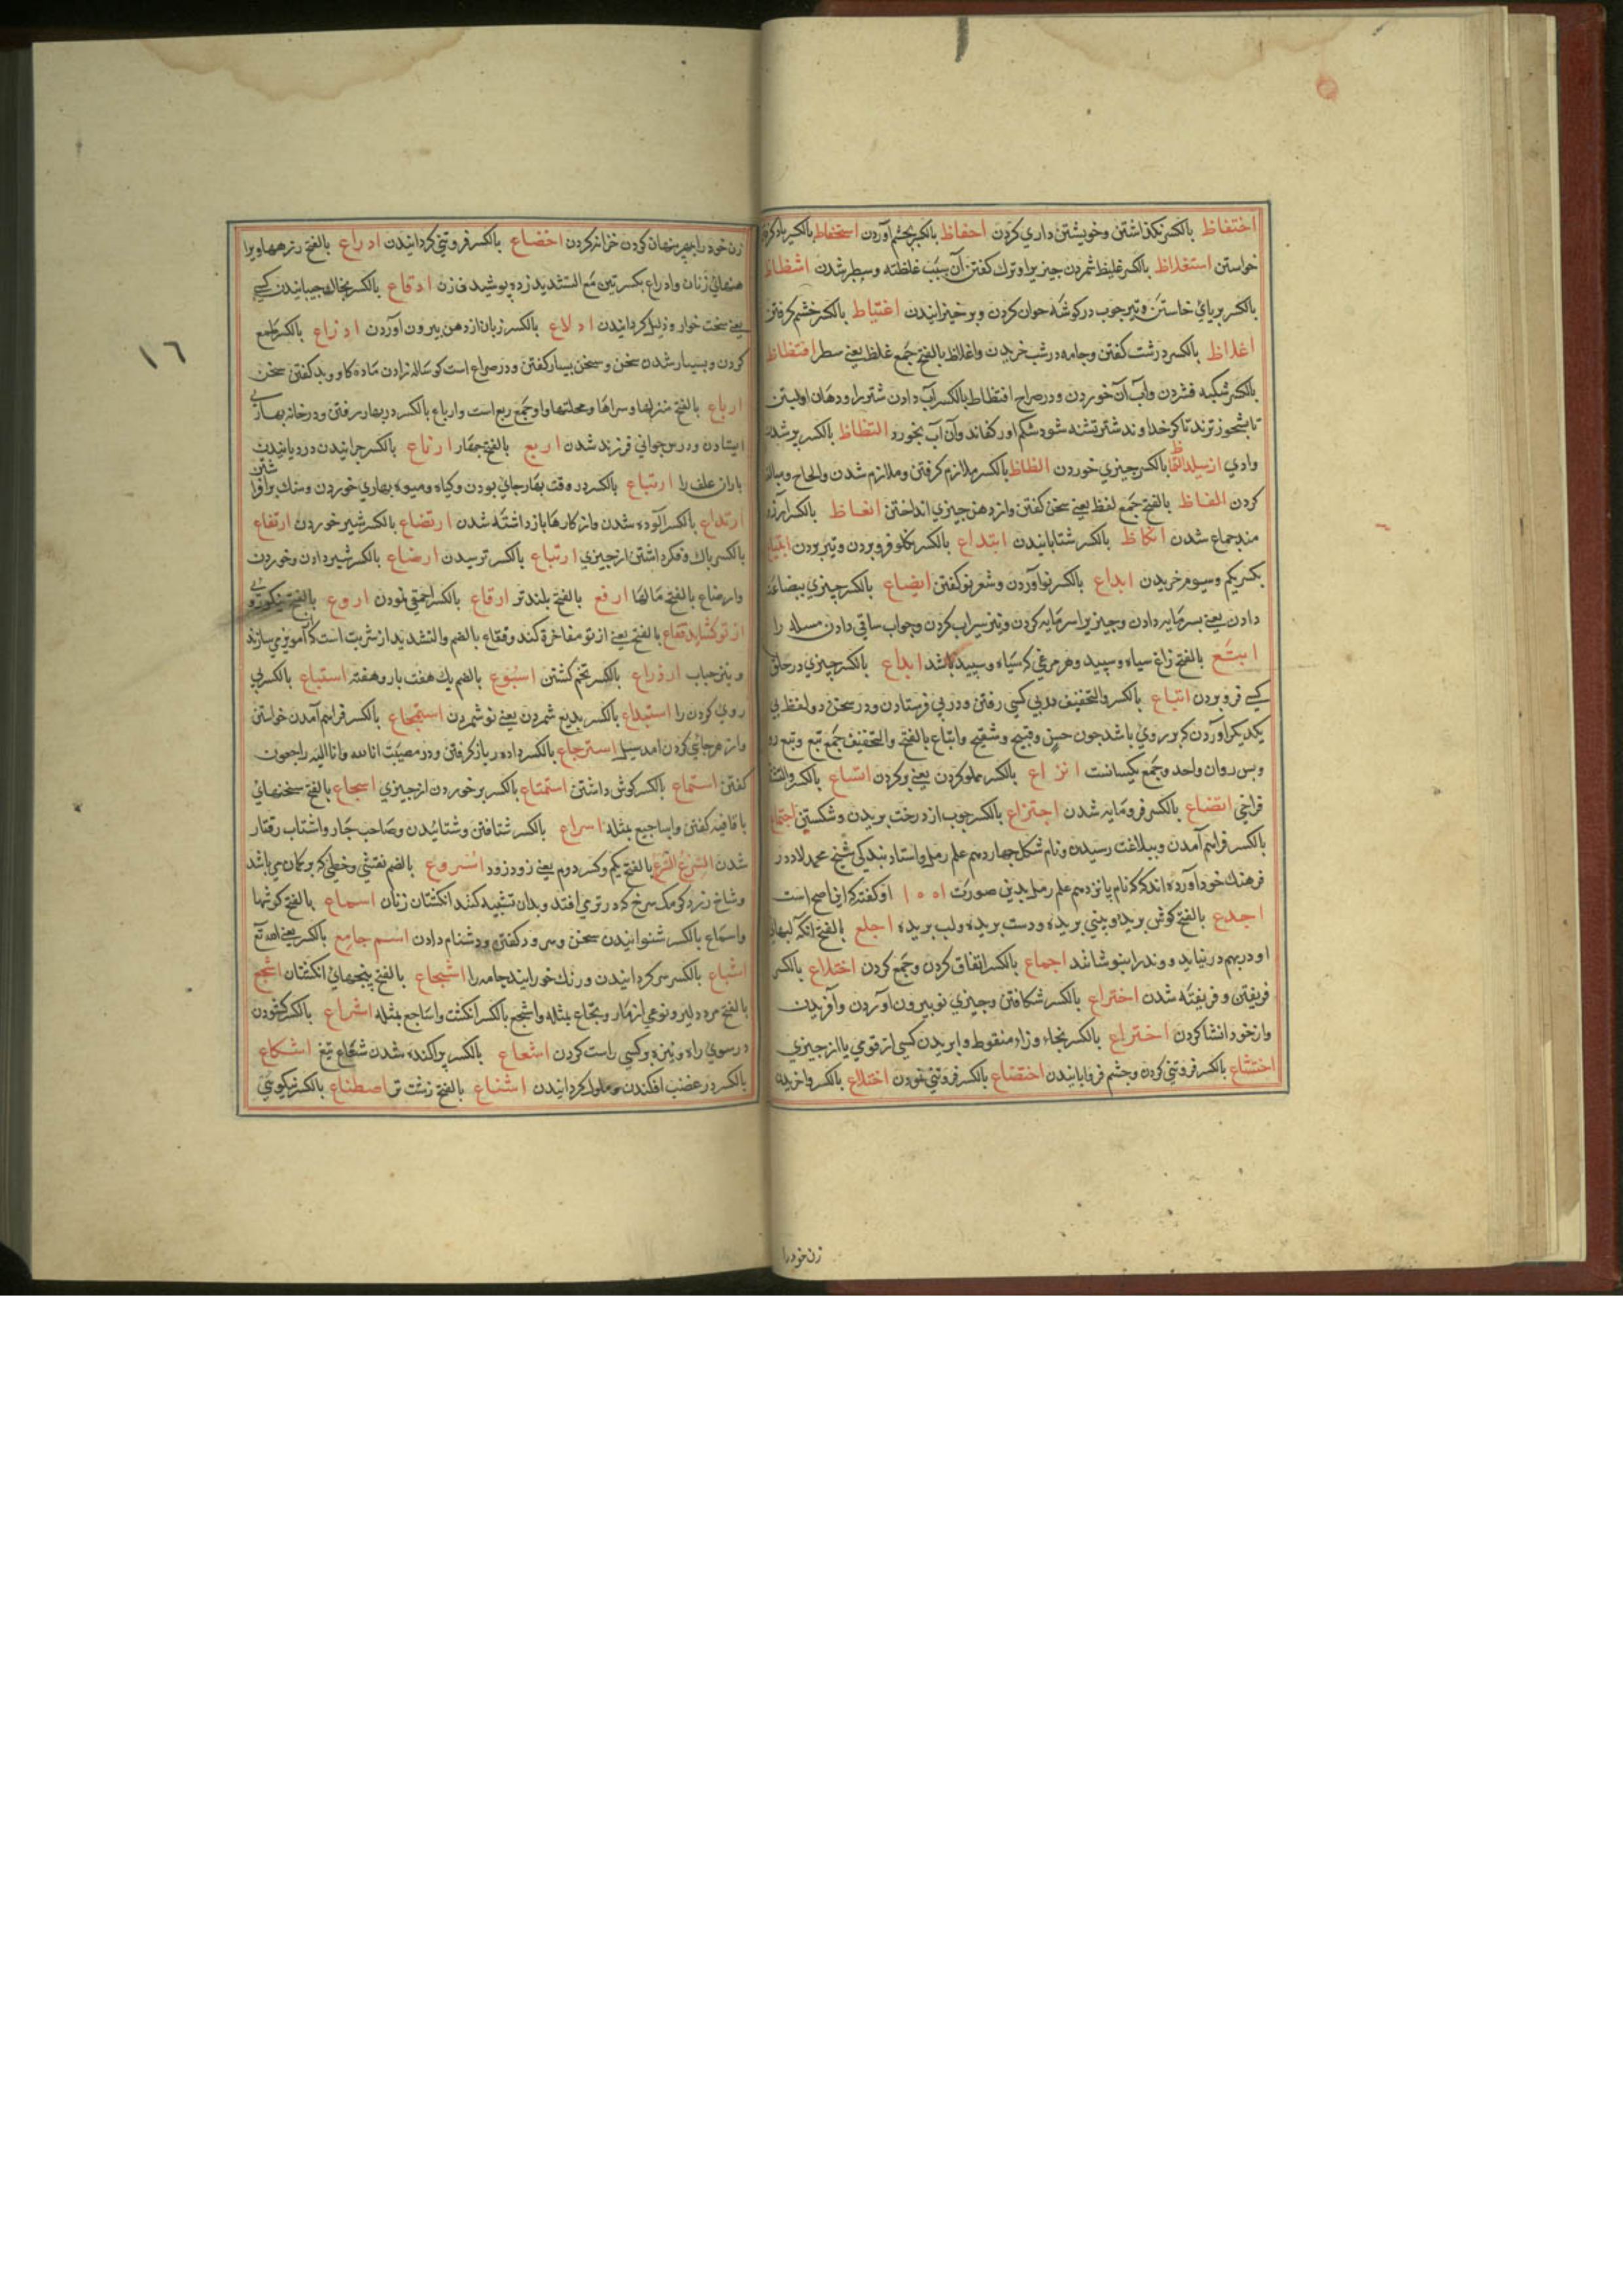 احتفاظ بالكسر نكذاشتن وخويشتن داري كردن احفاظ بالكسر بخشم آوردن استحفاظ بالكسر ياد كرفتن
خواستن استغلاظ بالكسر غليظ شمردن چيزيرا وترك كفتن آن بسبب غلظته وسطبر شدن اشظاظ
بالكسر برپاي خاستن وتيز چوب در كوشه جوان كردن وبرخيزانيدن اغتياظ بالكسر خشم كرفتن
اغلاظ بالكسر درشت كفتن وجامه درشت خريدن واغلاظ بالفتح جمع غلظ يعني سطبر افتظاظ
بالكسر شكنبه فشردن وآب آن خوردن ودر صراح افتظاظ بالكسر آب دادن شتر را ودهان او بستن
تا نشخوار نزند تا كر خداوند شتر تشنه شود شكم او ركفاند وآن آب بخورد التظاظ بالكسر پر شدن
وادي از سيل بالكسر چيزي خوردن الظاظ بالكسر ملازم كرفتن وملازم شدن والحاح ومبالغه
كردن الفاظ بالفتح جمع لفظ يعني سخن كفتن واز دهن چيزي انداختن انعاظ بالكسر آرزو
مند جماع شدن انكاظ بالكسر شتابانيدن ابتداع بالكسر بكلو فرو بردن وتيز بردن ابتياع
بكسر يكم وسيوم خريدن ابداع بالكسر نو آوردن وشعر نو كفتن ابضاع بالكسر چيزي ببضاعت
دادن يعني بسرمايه دادن وچيزيرا سرمايه كردن ونيز سيراب كردن وجواب ساقي دادن مسله را
ابقع بالفتح زاغ سياه وسپيد وهر مرغي كه سياه وسپيد باشد ابلاع بالكسر چيزي در حلق
كسي فرو بردن اتباع بالكسر والتخفيف در پي كسي رفتن ودر پي فرستادن ودر سخن دو لفظ پي
يكديكر آوردن كه بر روي باشد چون حسن وقبيح وشقيح واتباع بالفتح والتخفيف جمع تبع وتبع رو
وپس روان واحد وجمع يكسانست اتراع بالكسر مملو كردن يعني پر كردن اتساع بالكسر والتشديد
فراخي اتضاع بالكسر فرو مايه شدن اجتزاع بالكسر چوب از درخت بريدن وشكستن اجتماع
بالكسر فراهم آمدن وببلاغت رسيدن ونام شكل چهاردهم علم رمل واستاد بندكي شيخ محمد لاد در
فرهنك خود آورده اند كه كه نام پانزدهم علم رمل بدين صورت او كفته كه اين اصح است
اجدع بالفتح كوش بريده وبيني بريده ودست بريده ولب بريده اجلع بالفتح انكه لبهاي
او در بهم در نيايد ودندانرا بپوشاند اجماع بالكسر اتفاق كردن وجمع كردن اختداع بالكسر
فريفتن وفريفته شدن اختراع بالكسر شكافتن وچيزي نو بيرون آوردن وآفريدن
واز خود انشا كردن اختزاع بالكسر بخاء وزاء منقوط وا بريدن كسي از قومي يا از چيزي
اختشاع بالكسر فروتني كردن وچشم فروبايانيدن اختضاع بالكسر فروتني نمودن اختلاع بالكسر واخريدن
زن خود را
١٦
زن خود را بمهر پنهان كردن خزانه كردن اخضاع بالكسر فروتني كردانيدن ادراع بالفتح زرهها وپيرا
هنهاي زنان وادراع بكسرتين مع التشديد زره پوشيدن زن ادقاع بالكسر بخاك چسپانيدن كسي
يعني سخت خوار وذليل كردانيدن ادلاع بالكسر زبان از دهن بيرون آوردن اذراع بالكسر طمع
كردن وبسيار شدن سخن وسخن بسيار كفتن ودر صراح است كوساله زادن ماده كاو وبد كفتن سخن
ارباع بالفتح منزلها وسراها ومحلتها واو جمع ربع است وارباع بالكسر در بهار رفتن ودر خانه بهاري
ايستادن ودر جواني فرزند شدن اربع بالفتح چهار ارتاع بالكسر چرانيدن ودر ويانيدن
باران علف را ارتباع بالكسر در وقت بهار جاي بودن وكياه وميوه بهاري خوردن وسنك برافرا
شتن
ارتداع بالكسر آلوده شدن واز كارها باز داشته شدن ارتضاع بالكسر شير خوردن ارتفاع
بالكسر باك وفكر داشتن از چيزي ارتباع بالكسر ترسيدن ارضاع بالكسر شير دادن وخوردن
وارضاع بالفتح مالها ارفع بالفتح بلندتر ارقاع بالكسر احمقي نمودن اروع بالفتح نيكوروي
از تو كشايد فقاع بالفتح يعني از تو مفاخرة كند وفقاع بالضم والتشديد از شربت است كه آمويزي سازند
ونيز حباب ازدراع بالكسر تخم كشتن اسبوع بالضم يك هفت بار وهفته استباع بالكسر پي
روي كردن را استبداع بالكسر بديع شمردن يعني نو شمردن استجماع بالكسر فراهم آمدن خواستن
واز هر جاي كردن امد سيل استرجاع بالكسر داده باز كرفتن ودر مصيبت انا لله وانا اليه راجعون
كفتن استماع بالكسر كوش داشتن استمتاع بالكسر برخوردن از چيزي اسجاع بالفتح سخنهاي
با قافيه كفتن واساجيع بمثله اسراع بالكسر شتافتن وشتابيدن وصاحب چار واشتاب رفتار
شدن السرع السرع بالفتح يكم وكسر دوم يعني زود زود اسروع بالضم نقشي وخطي كه بر كمان مي باشد
وشاخ زرد كرمك سرخ كه در تري افتد وبدان تشبيه كنند انكشتان زنان اسماع بالفتح كوشها
واسماع بالكسر شنوانيدن سخن وسرود كفتن ودشنام دادن اسم جامع بالكسر يعني الله تع
اشباع بالكسر سير كردانيدن ورنك خورانيد جامه را اشجاع بالفتح پنجهاي انكشتان اشجع
بالفتح مرد دلير ونوعي از مار وشجاع بمثله واشجع بالكسر انكشت واشاجع بمثله اشراع بالكسر كشودن
در سوي راه ونيزه بر كسي راست كردن اشعاع بالكسر پراكنده شدن شعاع تيغ اشكاع
بالكسر در غضب افكندن وملول كردانيدن اشناع بالفتح زشت تر اصطناع بالكسر نيكويي